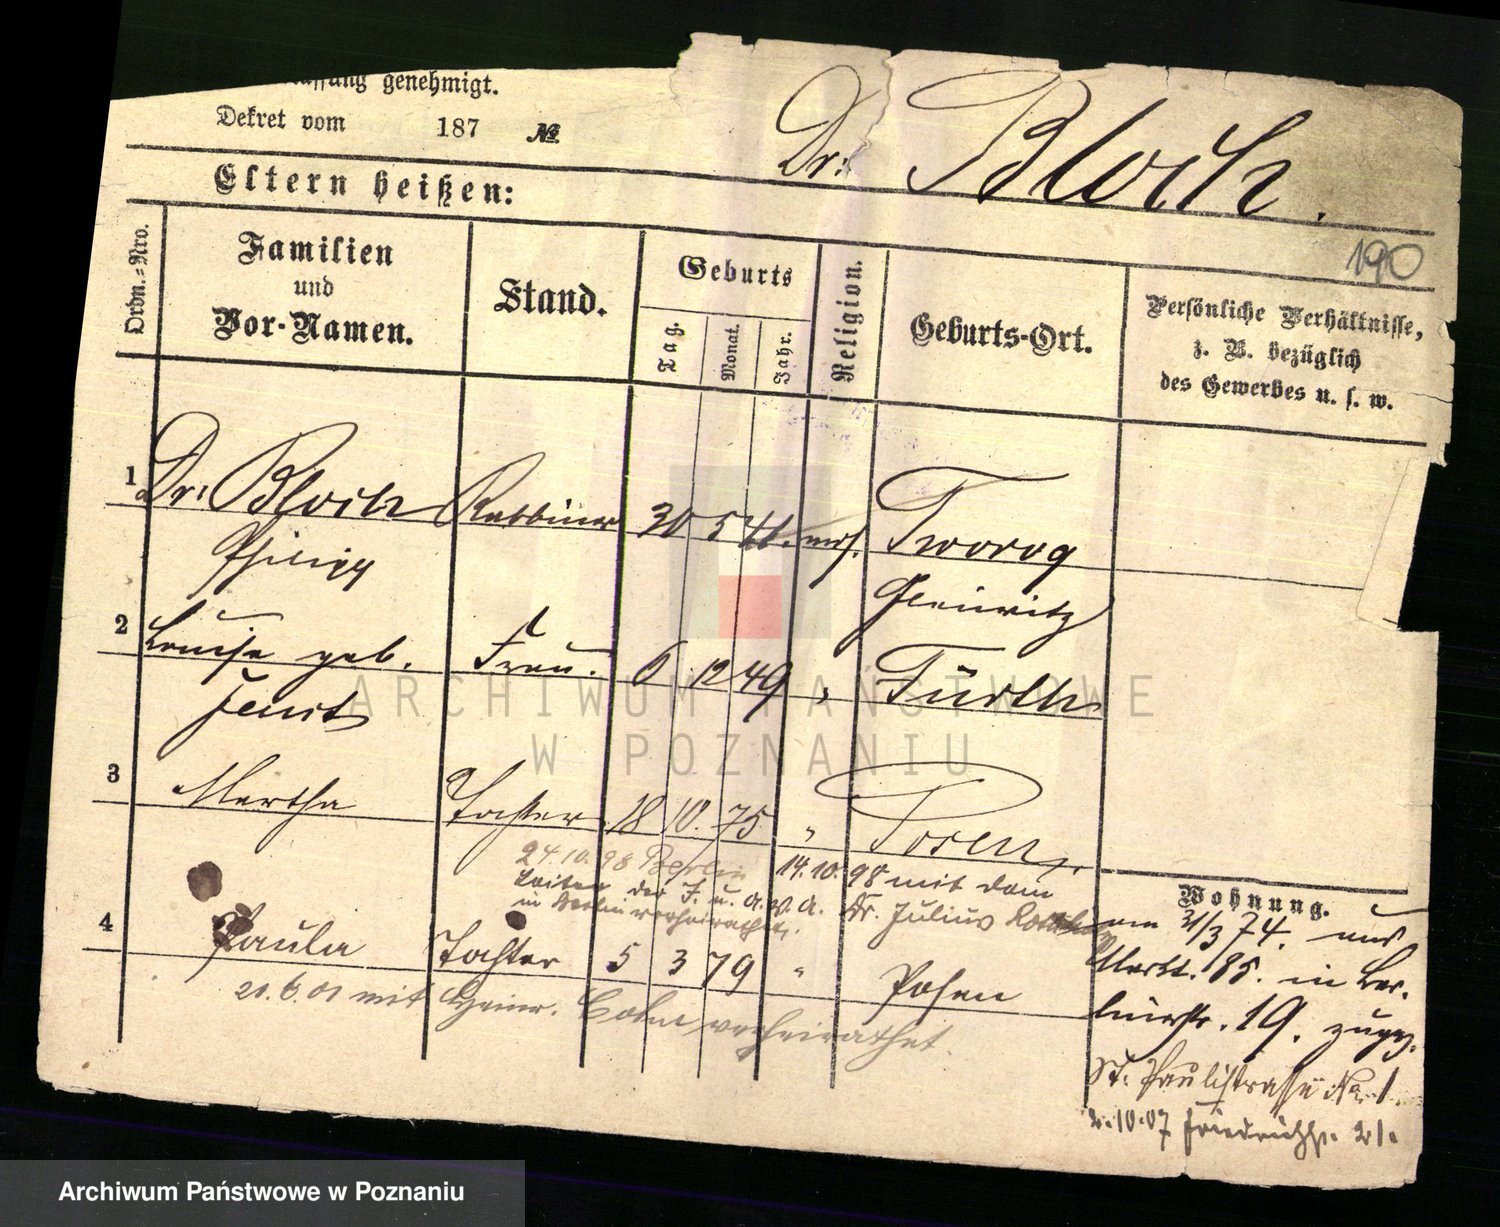 genehmigt.
Dekret vom 187 №
Dr: Bloch.
Eltern heißen:
190
Ordn.=Nro.
Familien
und
Vor-Namen.
Stand.
Geburts
Tag.
Monat.
Jahr.
Religion.
Geburts-Ort.
Persönliche Verhältnisse,
z. B. bezüglich
des Gewerbes u. s. w.
1 Dr: Bloch Rabbiner 30 5 41. mos. Tworog
Philipp Gleiwitz
2 Louise geb. Frau. 6 12 49 " Fürth
3 Martha Tochter 18 10. 75 " Posen
24.10.98 Berlin 14.10.98 mit dem
der F. u. A. V. A. Dr. Julius
in Berlin verheirathet.
4 Paula Tochter 5 3 79 " Posen
21.6.01 mit Heinr. Cohn verheirathet.
Wohnung.
am 31/3 74. aus
Markt. 85. in Ber-
linerstr. 19. zugez.
St. Paulistrasse No. 1.
2.10.07 Friedrichstr. 21.
ARCHIWUM PAŃSTWOWE
W POZNANIU
Archiwum Państwowe w Poznaniu